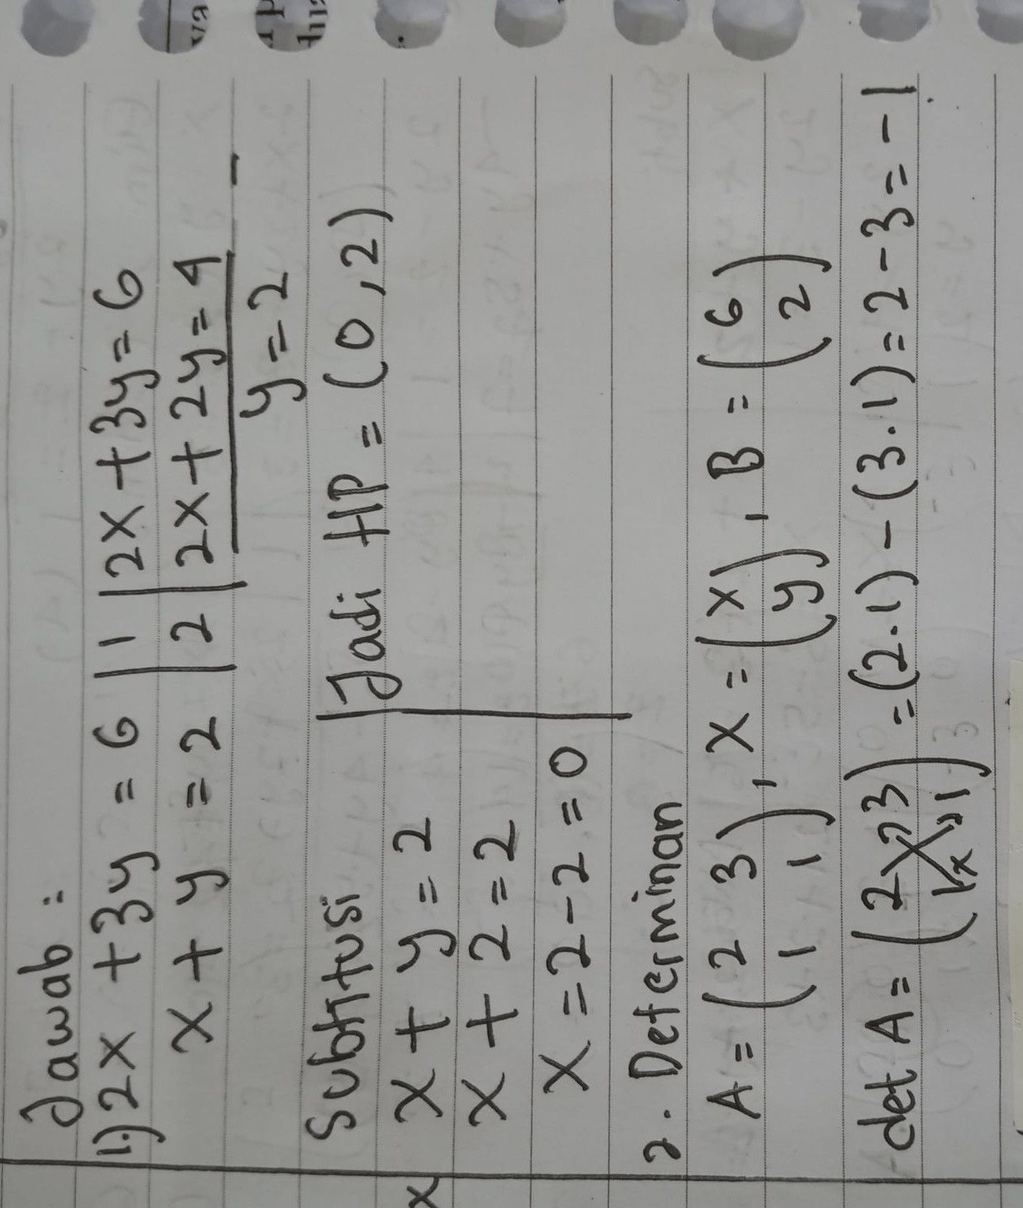 Jawab :
1.) 2x + 3y = 6 | 1 | 2x + 3y = 6
x + y = 2 | 2 | 2x + 2y = 4 -
y = 2
Subtitusi
x + y = 2
x + 2 = 2
x = 2 - 2 = 0
Jadi HP = (0,2)
2. Determinan
A = (2 3
1 1), X = (x
y), B = (6
2)
det A = (2 3
1 1) = (2.1) - (3.1) = 2 - 3 = -1